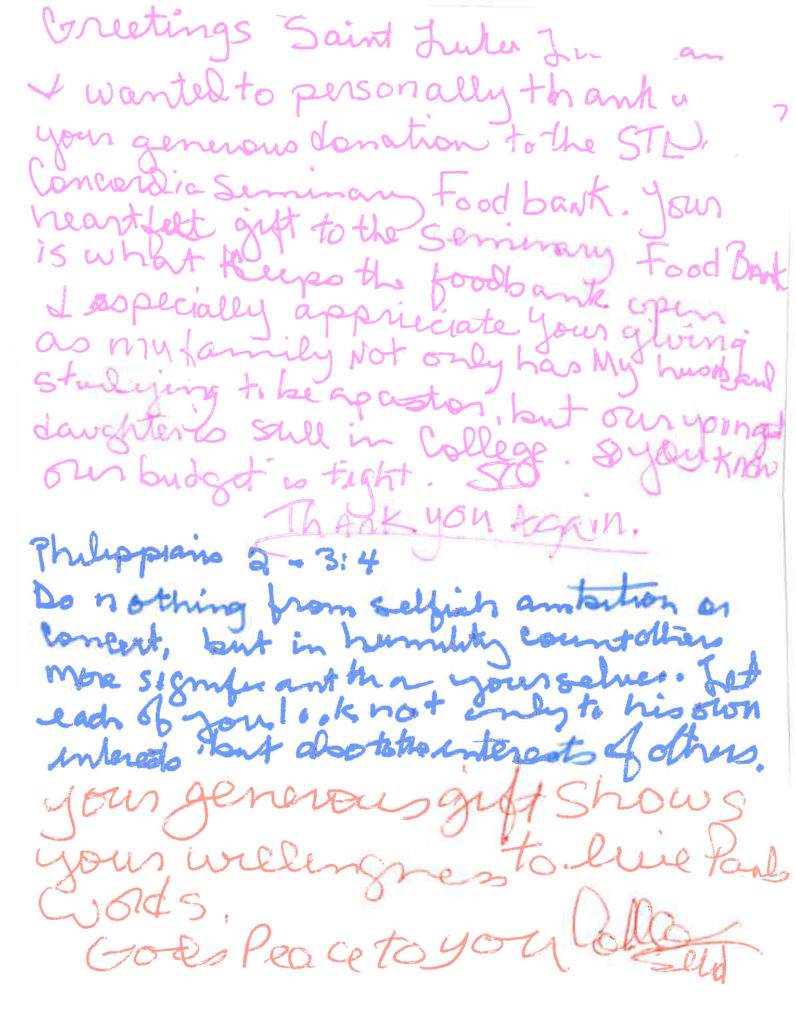 Greetings Saint Luke
I wanted to personally thank u
your generous donation to the STL
Concordia Seminary Food bank. Your
heartfelt gift to the Seminary Food Bank
is what keeps the foodbank open
I especially appriciate your giving
as my family Not only has My husband
studying to be a pastor, but our youngest
daughter is still in College. So you know
our budget is tight. SOO
Thank you Again.
Philippians 2 - 3:4
Do nothing from selfish ambition or
conceit, but in humility count others
more significant than yourselves. Let
each of you look not only to his own
interests but also to the interests of others.
your generous gift shows
your willingness to live Pauls
words.
God's Peace to you